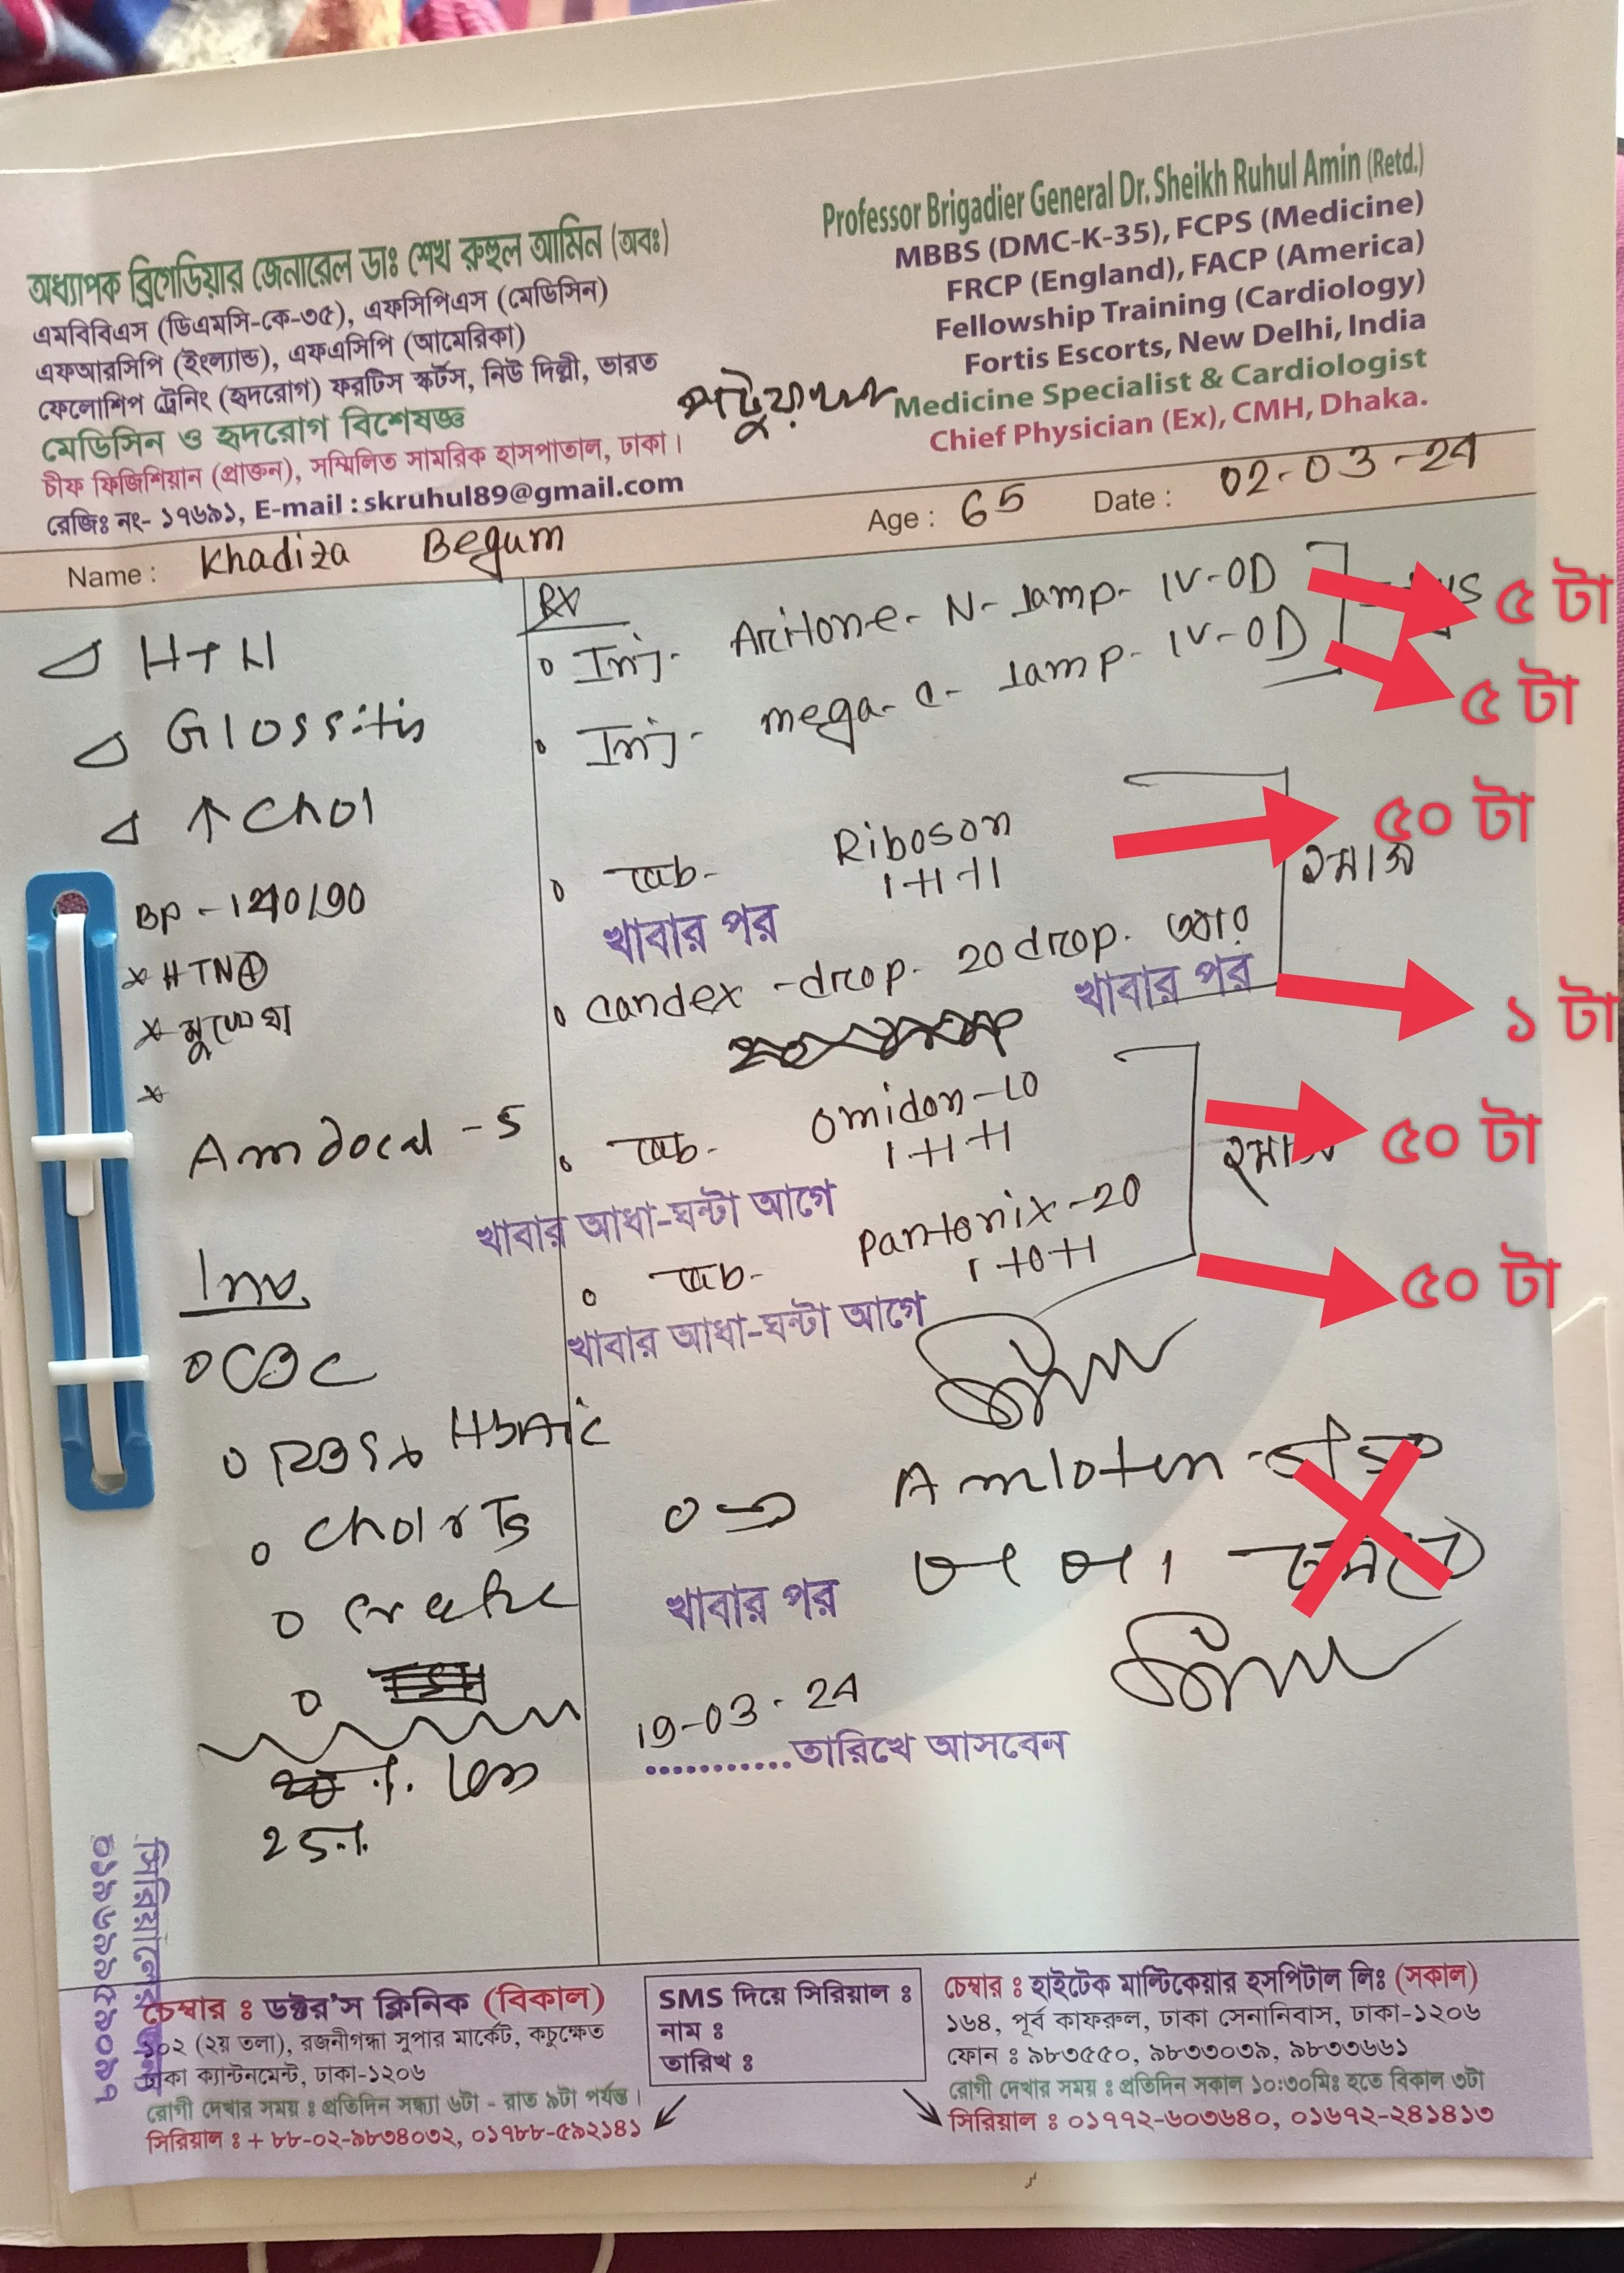 অধ্যাপক ব্রিগেডিয়ার জেনারেল ডাঃ শেখ রুহুল আমিন (অবঃ)
এমবিবিএস (ডিএমসি-কে-৩৫), এফসিপিএস (মেডিসিন)
এফআরসিপি (ইংল্যান্ড), এফএসিপি (আমেরিকা)
ফেলোশিপ ট্রেনিং (হৃদরোগ) ফরটিস স্কর্টস, নিউ দিল্লী, ভারত
মেডিসিন ও হৃদরোগ বিশেষজ্ঞ
চীফ ফিজিশিয়ান (প্রাক্তন), সম্মিলিত সামরিক হাসপাতাল, ঢাকা।
রেজিঃ নং- ১৭৬৯১, E-mail : skruhul89@gmail.com
Professor Brigadier General Dr. Sheikh Ruhul Amin (Retd.)
MBBS (DMC-K-35), FCPS (Medicine)
FRCP (England), FACP (America)
Fellowship Training (Cardiology)
Fortis Escorts, New Delhi, India
Medicine Specialist & Cardiologist
Chief Physician (Ex), CMH, Dhaka.
Name : Khadiza Begum Age : 65 Date : 02-03-24
HTN
Glossitis
↑Chol
BP - 140/90
* HTN
Amdocal - 5
Inv.
CBC
RBS HbA1c
Chol
25%
Rx
Inj- Aritone- N- 1amp- IV-OD
৫ টা
Inj- mega- C- 1amp- IV-OD
৫ টা
Tab- Riboson
1+1+1
৫০ টা
খাবার পর
২মাস
Candex -drop- 20drop.
খাবার পর
১ টা
Tab- Omidon-10
1+1+1
৫০ টা
খাবার আধা-ঘন্টা আগে
Tab- Pantonix-20
1+0+1
৫০ টা
খাবার আধা-ঘন্টা আগে
খাবার পর
19-03-24
...........তারিখে আসবেন
চেম্বার ঃ ডক্টর'স ক্লিনিক (বিকাল)
১০২ (২য় তলা), রজনীগন্ধা সুপার মার্কেট, কচুক্ষেত
ঢাকা ক্যান্টনমেন্ট, ঢাকা-১২০৬
রোগী দেখার সময় ঃ প্রতিদিন সন্ধ্যা ৬টা - রাত ৯টা পর্যন্ত।
সিরিয়াল ঃ + ৮৮-০২-৯৮৩৪০৩২, ০১৭৮৮-৫৯২১৪১
SMS দিয়ে সিরিয়াল ঃ
নাম ঃ
তারিখ ঃ
চেম্বার ঃ হাইটেক মাল্টিকেয়ার হসপিটাল লিঃ (সকাল)
১৬৪, পূর্ব কাফরুল, ঢাকা সেনানিবাস, ঢাকা-১২০৬
ফোন ঃ ৯৮৩৫৫০, ৯৮৩৩০৩৯, ৯৮৩৩৬৬১
রোগী দেখার সময় ঃ প্রতিদিন সকাল ১০:৩০মিঃ হতে বিকাল ৩টা
সিরিয়াল ঃ ০১৭৭২-৬০৩৬৪০, ০১৬৭২-২৪১৪১৩